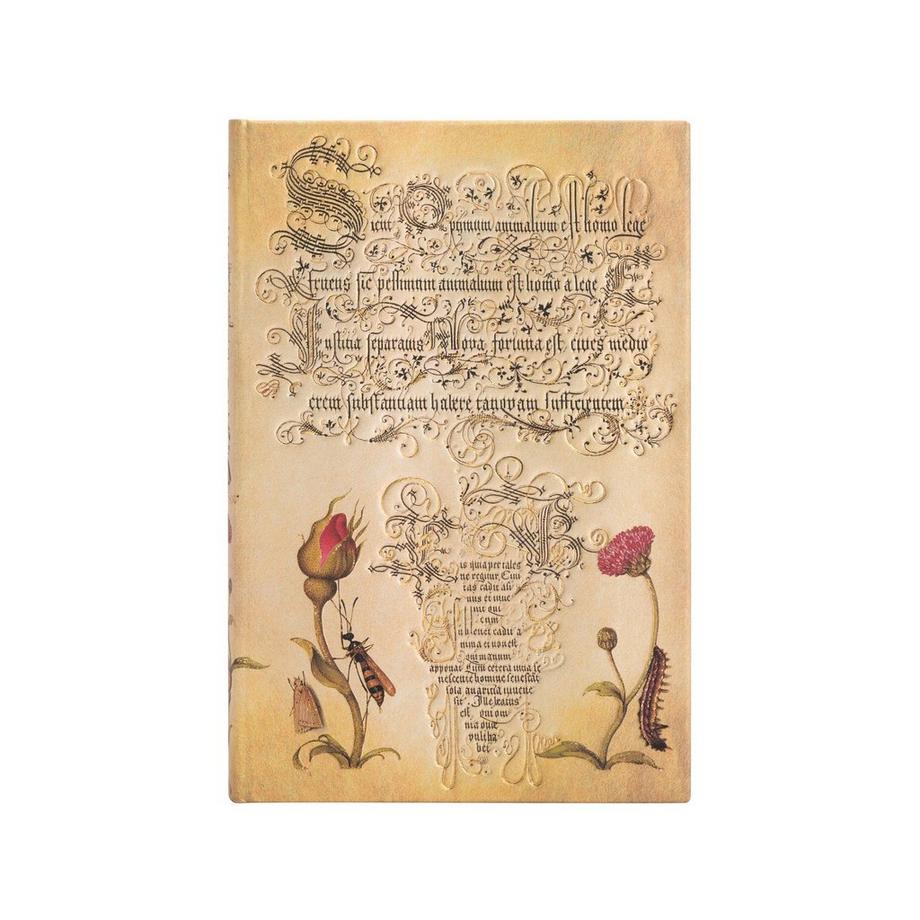 Sicut Optimum animalium est homo lege
fruens sic pessimum animalium est homo a lege Et
Justitia separatus Nova fortuna est cives medio
crem substantiam habere tanqvam sufficientem
is quia per tales
ne regitur, Civi
tas cadit ali
nus et
nit qui
cum
cadit a
nima et non est
omi manum
apponat Cum cetera vitia se
nescente homine senescat
sola avaritia iuvene
scit
est, qui om
nia que